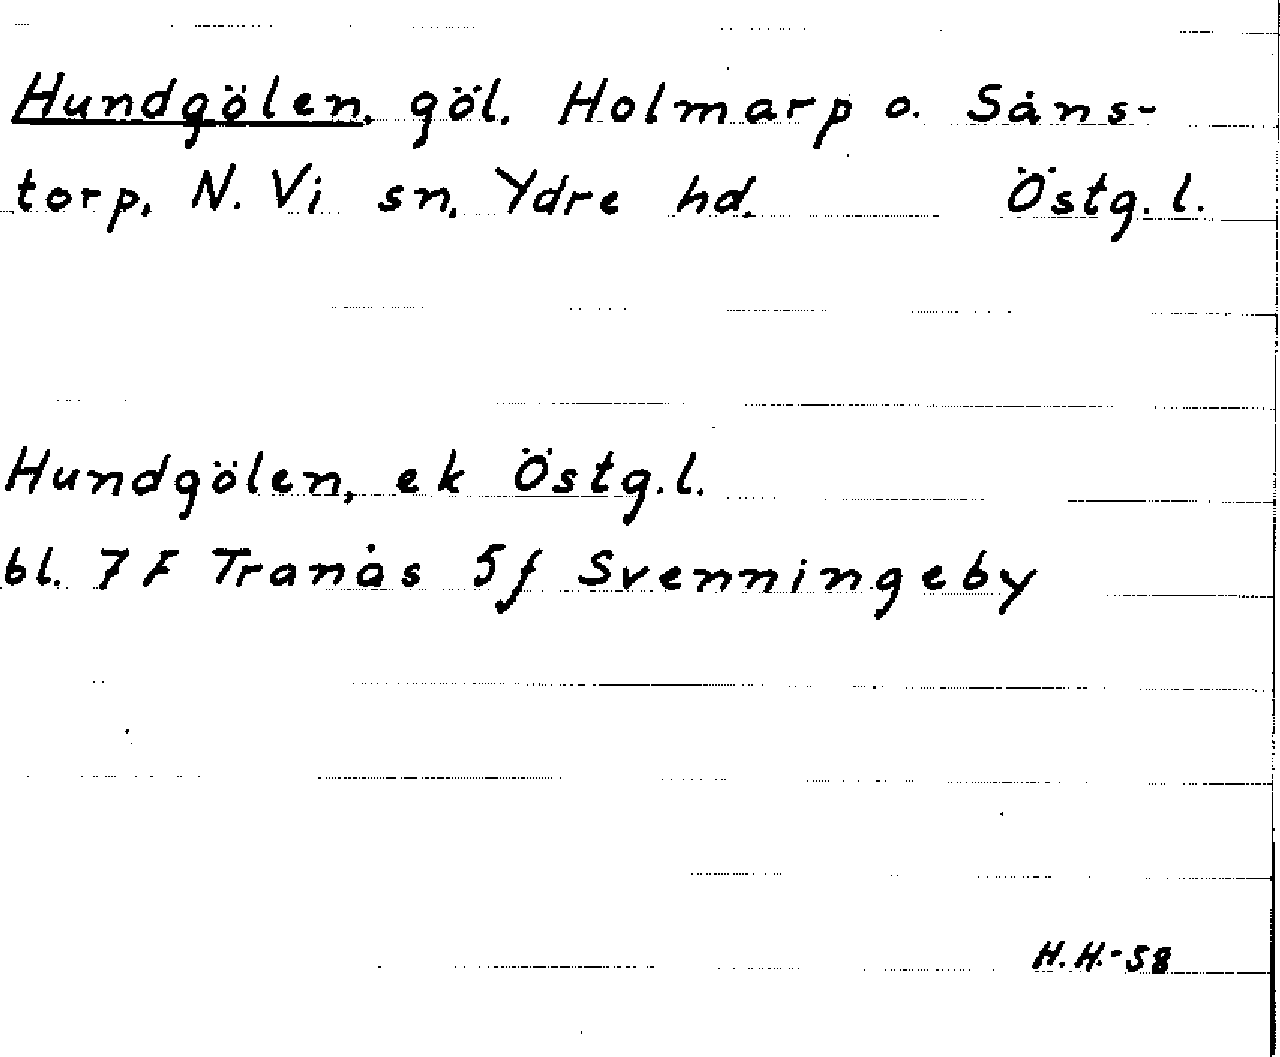 Hundgölen, göl. Holmarp o. Såns-
torp, N. Vi sn, Ydre hd. Östg. l.
Hundgölen, ek Östg. l.
bl. 7 F Tranås 5f Svenningeby
H. H.-58